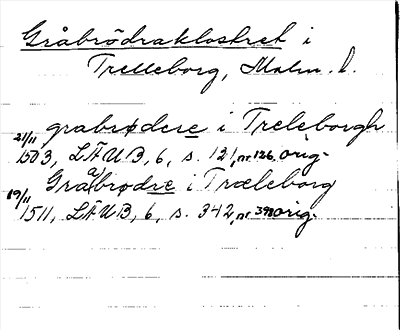 Gråbrödraklostret i
Trelleborg, Malm. l.
grabrødere i Treleborgh
21/11 1503, LÄUB, 6, s. 121, nr 126. orig.
Graabrødre i Træleborg
19/11 1511, LÄUB, 6, s. 342, nr 398 orig.